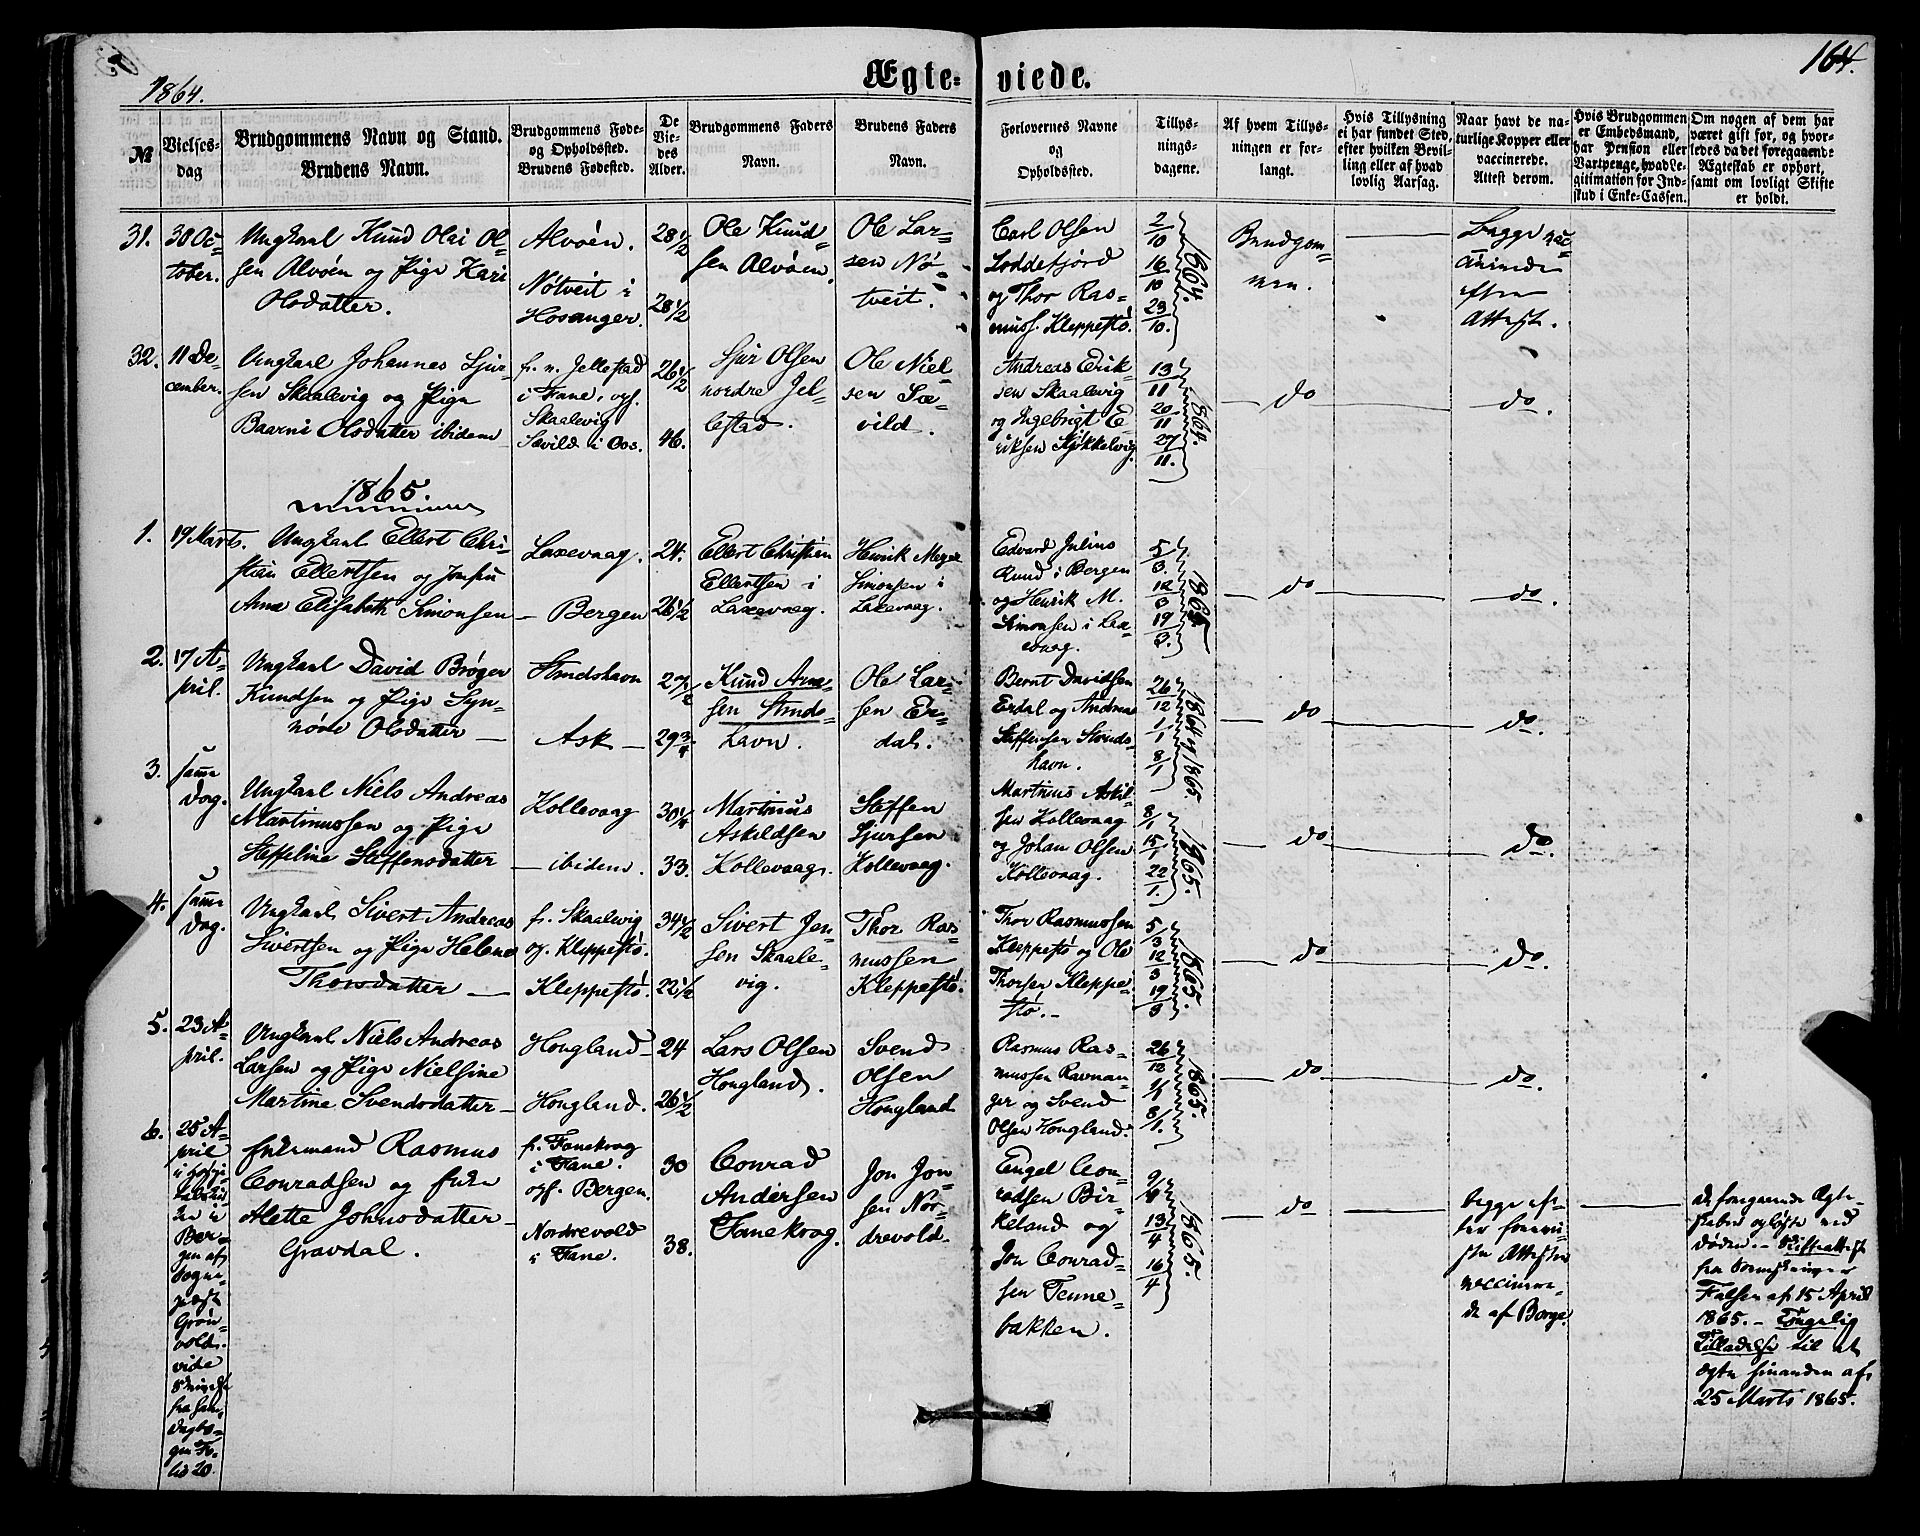 1864.
Ægte-
viede.
164.
№
Vielses-
dag
Brudgommens Navn og Stand.
Brudens Navn.
Brudgommens Føde-
og Opholdssted.
Brudens Fødested.
De
Vie-
des
Alder.
Brudgommens Faders
Navn.
Brudens Faders
Navn.
Forlovernes Navne
og
Opholdssted.
Tillys-
nings-
dagene.
Af hvem Tillys-
ningen er for-
langt.
Hvis Tillysning
ei har fundet Sted,
efter hvilken Bevil-
ling eller af hvad
lovlig Aarsag.
Naar havt de na-
turlige Kopper eller
vaccinerede.
Attest derom.
Hvis Brudgommen
er Embedsmand,
har Pension eller
Vartpenge, hvad Le-
gitimation for Ind-
skud i Enke-Cassen.
Om nogen af dem har
været gift før, og hvor-
ledes da det foregaaende
Ægteskab er ophørt,
samt om lovligt Skifte
er holdt.
31.
30 Oc-
tober.
Ungkarl Knud Olai Ol-
sen Alvøen og Pige Kari
Olsdatter.
Alvøen.
Nøtveit i
Hosanger.
28 1/2
28 1/2
Ole Knud-
sen Alvøen
Ole Lar-
sen Nø-
tveit.
Carl Olsen
Loddefjord
og Thor Ras-
muss. Kleppestø.
2/10
16/10
23/10.
1864.
Brudgom-
men.
Begge vac-
cinerede
efter
Attest.
32.
11 De-
cember.
Ungkarl Johannes Sjur-
sen Skaalevig og Pige
Baarni Olsdatter ibidem
fr. n. Jellestad
i Fane, opf.
Skaalevig
Sævild i Oos.
26 1/2
46.
Sjur Olsen
nordre Jel-
lestad.
Ole Niel-
sen Sæ-
vild.
Andreas Erik-
sen Skaalevig
og Ingebrigt E-
riksen Kjøkkelvig.
13/11
20/11
27/11.
1864.
do
do.
1865.
1.
19 Marts.
Ungkarl Ellert Chri-
stian Ellertsen og Jomfru
Anna Elisabeth Simonsen
Laxevaag.
Bergen
24.
26 1/2
Ellert Christian
Ellertsen i
Laxevaag.
Henrik Meyer
Simonsen i
Laxevaag.
Edvard Julius
Lund i Bergen
og Henrik M.
Simonsen i Lax-
evaag.
5/3.
12/3
19/3.
1865
do
do.
2.
17 A-
pril.
Ungkarl David Brøger
Knudsen og Pige Syn-
nøve Olsdatter
Strudshavn
Ask
27 1/2
29 3/4
Knud Ana-
sen Struds-
havn.
Ole Lar-
sen Er-
dal.
Bernt Davidsen
Erdal og Andreas
Steffensen Struds-
havn.
26/12
1/1
8/1
1864 og 1865.
do
do.
3.
samme
Dag.
Ungkarl Niels Andreas
Martinussen og Pige
Steffeline Steffensdatter
Kollevaag
ibidem.
30 1/4
33.
Martinus
Askildsen
Kollevaag.
Steffen
Sjursen
Kollevaag.
Martinus Askil-
sen Kollevaag
og Johan Olsen
Kollevaag.
8/1
15/1
22/1.
1865.
do
do.
4.
samme
Dag.
Ungkarl Sivert Andreas
Sivertsen og Pige Helene
Thorsdatter
fr. Skaalevig
og. Kleppestø.
Kleppestø.
34 1/2
22 1/2
Sivert Jen-
sen Skaale-
vig.
Thor Ras-
mussen
Kleppestø.
Thor Rasmussen
Kleppestø og Ole
Thorsen Kleppe-
stø.
5/3
12/3
19/3
1865.
do
do.
5.
23 A-
pril.
Ungkarl Niels Andreas
Larsen og Pige Nielsine
Martine Svendsdatter
Hougland
Hougland.
24
26 1/2
Lars Olsen
Hougland.
Svend
Olsen
Hougland
Rasmus Ras-
mussen Ravnan-
ger og Svend
Olsen Hougland.
26/12
1/1
8/1.
1865.
do
do.
6.
25 A-
pril
i Hospi-
talskir-
ken i
Ber-
gen af
Sogne-
præst
Grøn-
vold.
vide
fra Sø
Enkemand Rasmus
Conradsen og Enke
Alette Johnsdatter
Gravdal.
fr. Fanekrog
i Fane.
opf. Bergen.
Nordrevold
i Fane.
30
38.
Conrad
Andersen
Fanekrog.
Jon Jon-
sen Nor-
drevold.
Engel Con-
radsen Bir-
keland og
Jon Conrad-
sen Tenne-
bakken.
9/4
13/4
16/4
1865.
do
begge ef-
ter forevi-
ste Attester
vaccinere-
de af Borge.
de foregaaende Ægte-
skaber opløste ved
Døden. Skifteattest
fra Sorenskriver
Falsen af 15 April
1865. - Kongelig
Tilladelse til at
ægte hinanden af
25 Marts 1865.